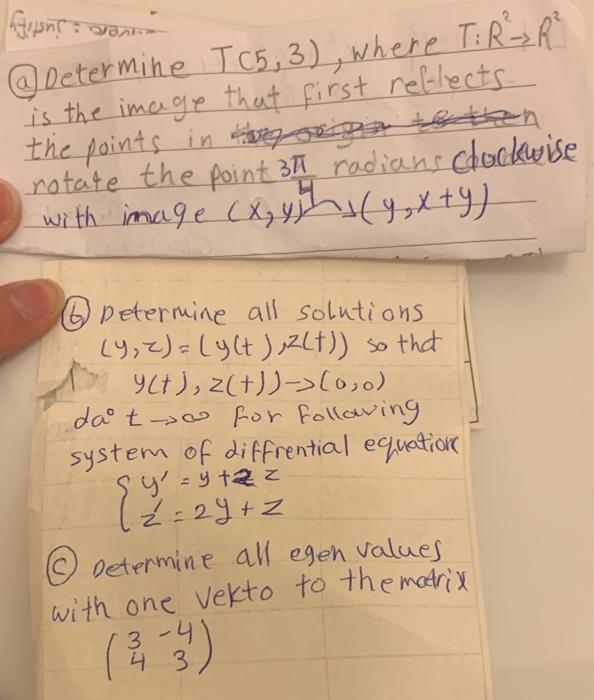 ⓐ Determine T(5,3), where T:R²→R²
is the image that first reflects
the points in
rotate the point 3π/4 radians clockwise
with image (x,y)→(y,x+y)
ⓑ Determine all solutions
(y,z)=(y(t),z(t)) so that
y(t),z(t))→(0,0)
da° t→∞ for following
system of diffrential equation
{ y' = y+2z
z' = 2y+z
ⓒ Determine all egen values
with one vekto to the matrix
(3 -4
4 3)